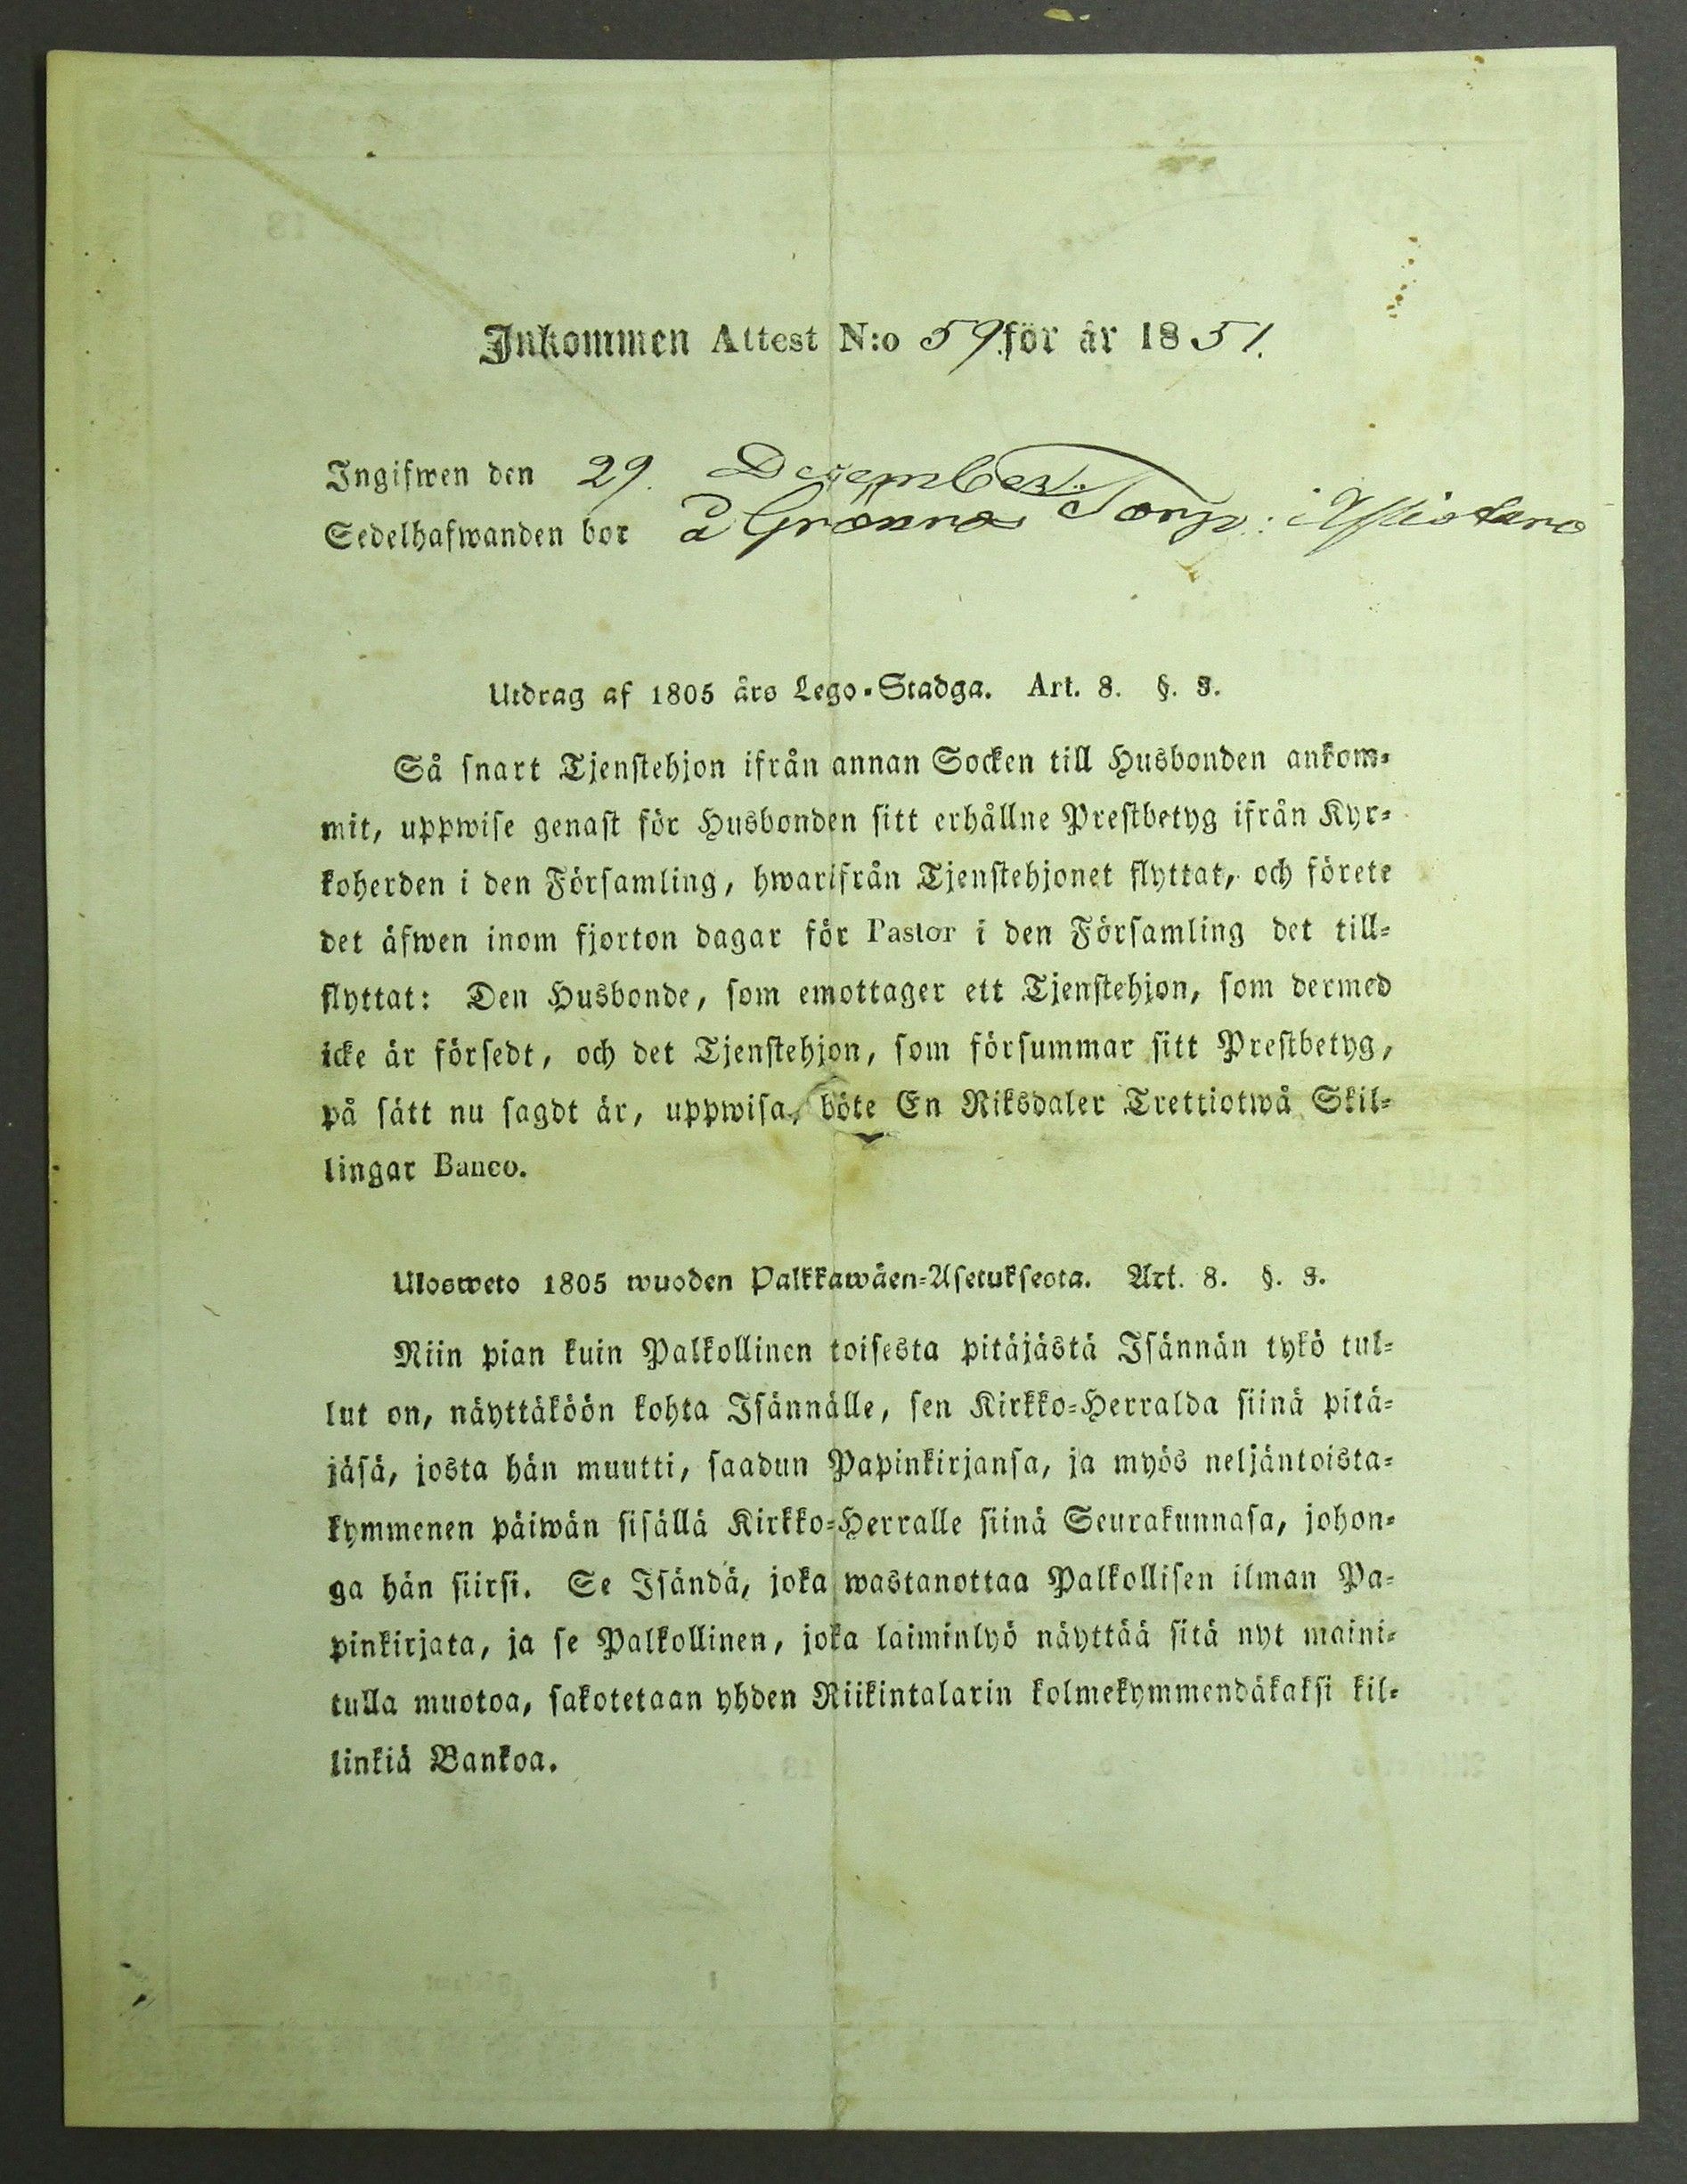 Inkommen Attest N:o 59. för år 1851.
Ingifwen den 29. December.
Sedelhafwanden bor å Grönna Torp:
Utdrag af 1805 års Lego-Stadga. Art. 8. §. 3.
Så snart Tjenstehjon ifrån annan Socken till Husbonden ankom-
mit, uppwise genast för Husbonden sitt erhållne Prestbetyg ifrån Kyr-
koherden i den Församling, hwarifrån Tjenstehjonet flyttat, och förete
det äfwen inom fjorton dagar för Pastor i den Församling det till-
flyttat: Den Husbonde, som emottager ett Tjenstehjon, som dermed
icke är försedt, och det Tjenstehjon, som försummar sitt Prestbetyg,
på sätt nu sagdt är, uppwisa, böte En Riksdaler Trettiotwå Skil-
lingar Banco.
Ulosweto 1805 wuoden Palkkawäen-Asetuksesta. Art. 8. §. 3.
Niin pian kuin Palkollinen toisesta pitäjästä Isännän tykö tul-
lut on, näyttäköön kohta Isännälle, sen Kirkko-Herralda siinä pitä-
jäsä, josta hän muutti, saadun Papinkirjansa, ja myös neljäntoista-
kymmenen päiwän sisällä Kirkko-Herralle siinä Seurakunnasa, johon-
ga hän siirsi. Se Isändä, joka wastanottaa Palkollisen ilman Pa-
pinkirjata, ja se Palkollinen, joka laiminlyö näyttää sitä nyt maini-
tulla muotoa, sakotetaan yhden Riikintalarin kolmekymmendäkaksi kil-
linkiä Bankoa.